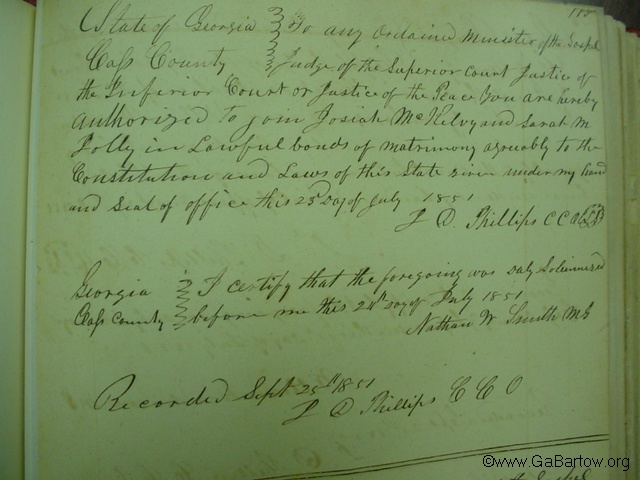 115
State of Georgia To any ordained minister of the Gospel
Cass County Judge of the Superior Court Justice of
the Inferior Court or Justice of the Peace You are hereby
authorized to join Josiah McKelvy and Sarah M
Polly in Lawful bonds of matrimony agreeably to the
Constitution and Laws of this State given under my hand
and Seal of office this 23d Day of July 1851
L D. Phillips C C O
Georgia I certify that the foregoing was duly Solemnized
Cass County before me this 24th Day of July 1851
Nathan W Smith MG
Recorded Sept 25th 1851
L D Phillips C C O
©www.GaBartow.org